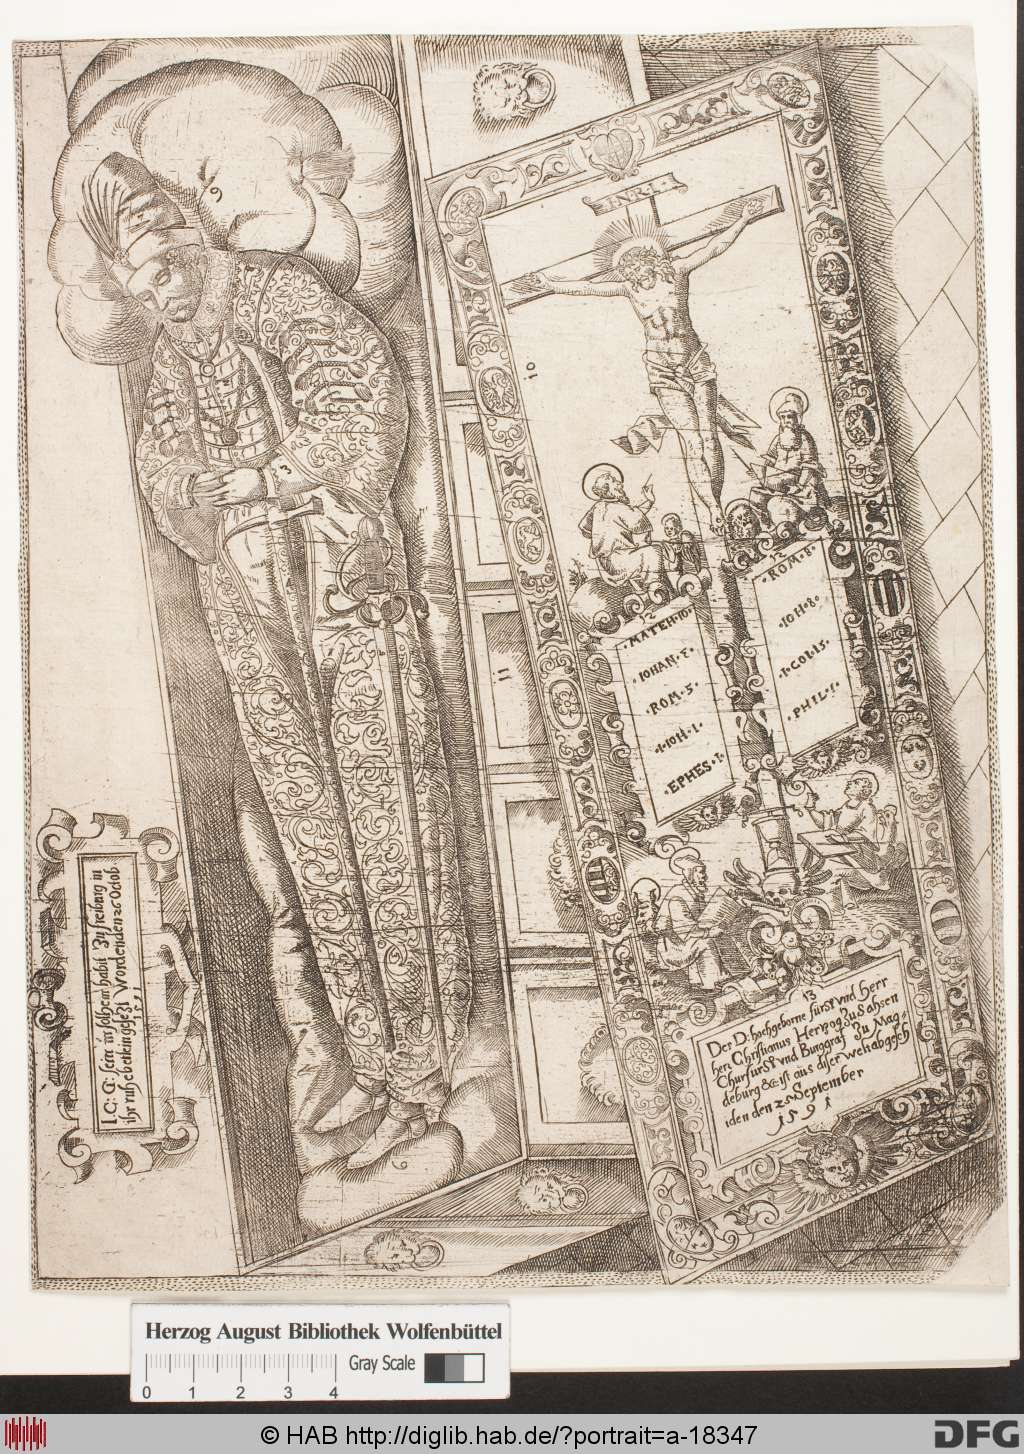 I. C. G. seien in solchem habit Zu freiburg in
ihr ruhebetkin gesezt Worden den 26 Octob.
1591
9
3
6
10
11
INRI
12
MATEH·10
IOHAN·3
ROM·5
1·IOH·1
EPHES·1
12
ROM·8
IOH·2
1·CO·15
PHIL·1
13
Der D: hochgeborne fürst vnd Herr
herr Christianus Herzog Zu Sahsen
Churfürst vnd Burggraf Zu Mag-
deburg &c: ist aus diser welt abgesch
iden den 25 September
1591
Herzog August Bibliothek Wolfenbüttel
Gray Scale
0 1 2 3 4
© HAB http://diglib.hab.de/?portrait=a-18347
DFG